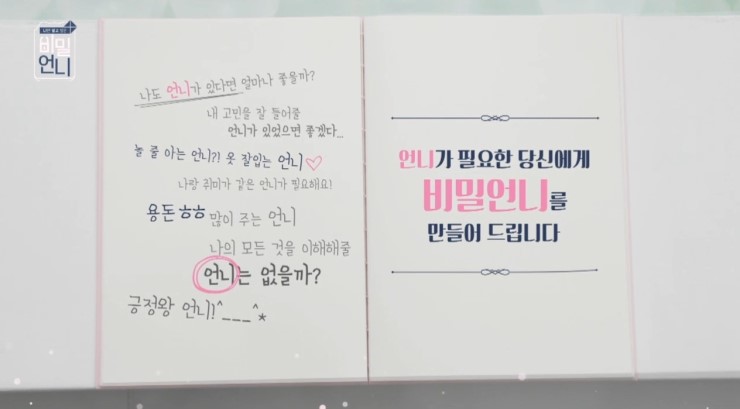 나만 알고 싶은
비밀
언니
나도 언니가 있다면 얼마나 좋을까?
내 고민을 잘 들어줄
언니가 있었으면 좋겠다...
놀 줄 아는 언니?! 옷 잘입는 언니♡
나랑 취미가 같은 언니가 필요해요!
용돈ㅎㅎ 많이 주는 언니
나의 모든 것을 이해해줄
언니는 없을까?
긍정왕 언니!^___^*
언니가 필요한 당신에게
비밀언니를
만들어 드립니다